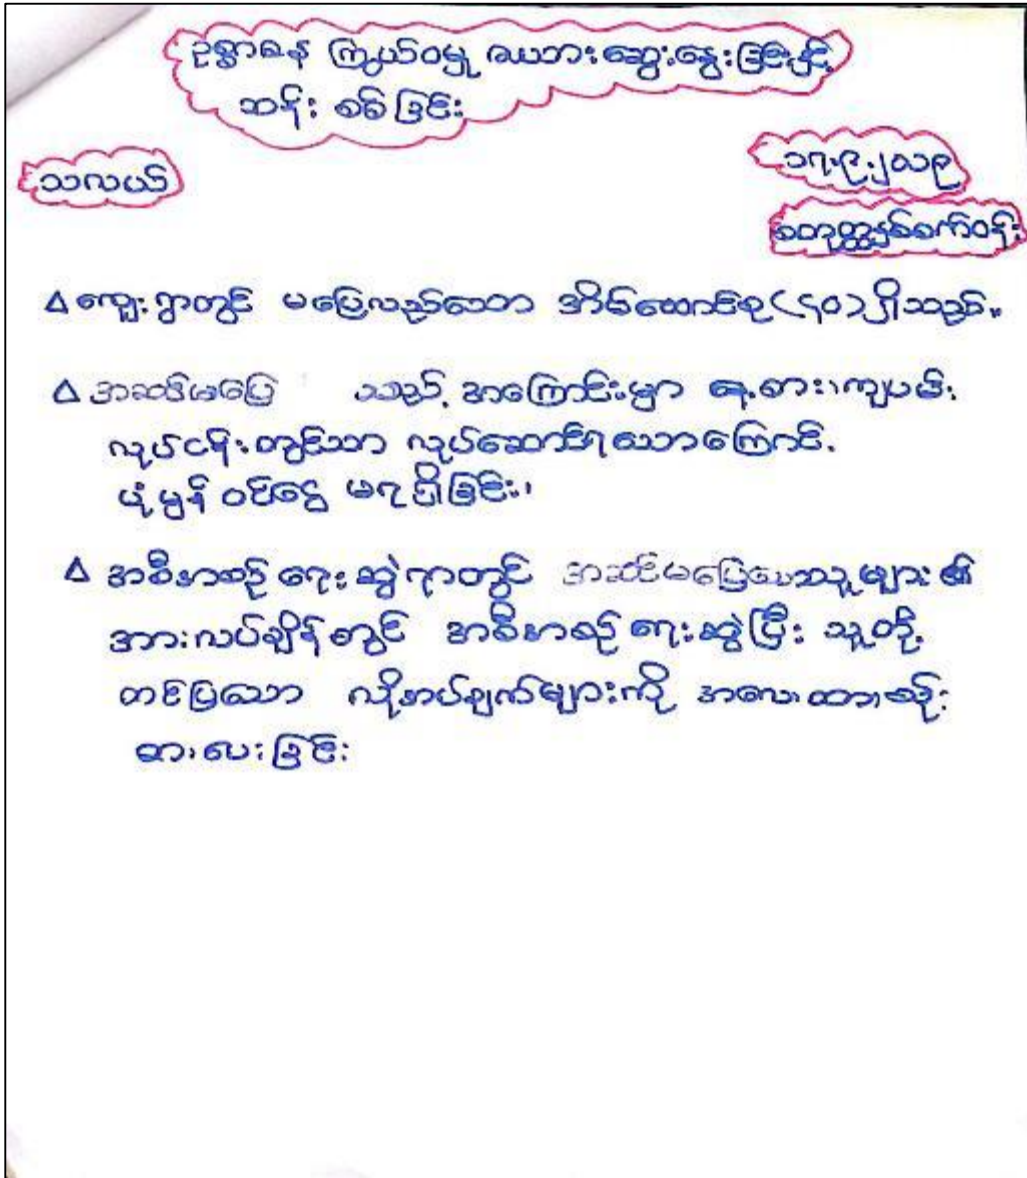 ဥစ္စာဓန ကြွယ်ဝမှု ဇယားဆွေးနွေးခြင်းနှင့်
ဆန်းစစ်ခြင်း
သလယ်
၁၇.၉.၂၀၁၉
စတုတ္ထနှစ်စက်ဝန်း
Δ ကျေးရွာတွင် မပြေလည်သော အိမ်ထောင်စု(၄၀)ရှိသည်။
Δ အဆင်မပြေ သည့် အကြောင်းမှာ ရေ့စား၊ကျပမ်း
လုပ်ငန်းတွင်သာ လုပ်ဆောင်ရသောကြောင့်
ပုံမှန် ဝင်ငွေ မရရှိခြင်း၊
Δ အစီအစဉ် ရေးဆွဲရာတွင် အဆင်မပြေသောသူများ၏
အားလပ်ချိန်တွင် အစီအစဉ် ရေးဆွဲပြီး သူတို့
တင်ပြသော လိုအပ်ချက်များကို အလေးထားစဉ်း
စားပေးခြင်း